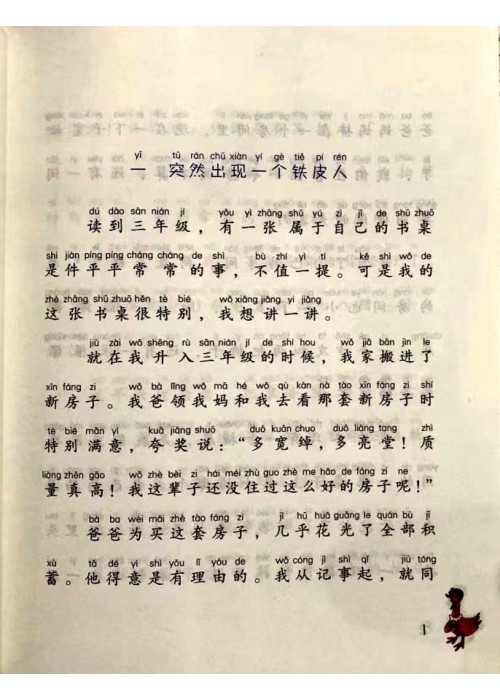 yī tū rán chū xiàn yí gè tiě pí rén
一 突然出现一个铁皮人
dú dào sān nián jí yǒu yì zhāng shǔ yú zì jǐ de shū zhuō
读到三年级，有一张属于自己的书桌
shì jiàn píng píng cháng cháng de shì bù zhí yì tí kě shì wǒ de
是件平平常常的事，不值一提。可是我的
zhè zhāng shū zhuō hěn tè bié wǒ xiǎng jiǎng yi jiǎng
这张书桌很特别，我想讲一讲。
jiù zài wǒ shēng rù sān nián jí de shí hou wǒ jiā bān jìn le
就在我升入三年级的时候，我家搬进了
xīn fáng zi wǒ bà lǐng wǒ mā hé wǒ qù kàn nà tào xīn fáng zi shí
新房子。我爸领我妈和我去看那套新房子时
tè bié mǎn yì kuā jiǎng shuō duō kuān chuo duō liàng tang zhì
特别满意，夸奖说：“多宽绰，多亮堂！质
liàng zhēn gāo wǒ zhè bèi zi hái méi zhù guo zhè me hǎo de fáng zi ne
量真高！我这辈子还没住过这么好的房子呢！”
bà ba wèi mǎi zhè tào fáng zi jī hū huā guāng le quán bù jī
爸爸为买这套房子，几乎花光了全部积
xù tā dé yì shì yǒu lǐ yóu de wǒ cóng jì shì qǐ jiù tóng
蓄。他得意是有理由的。我从记事起，就同
1